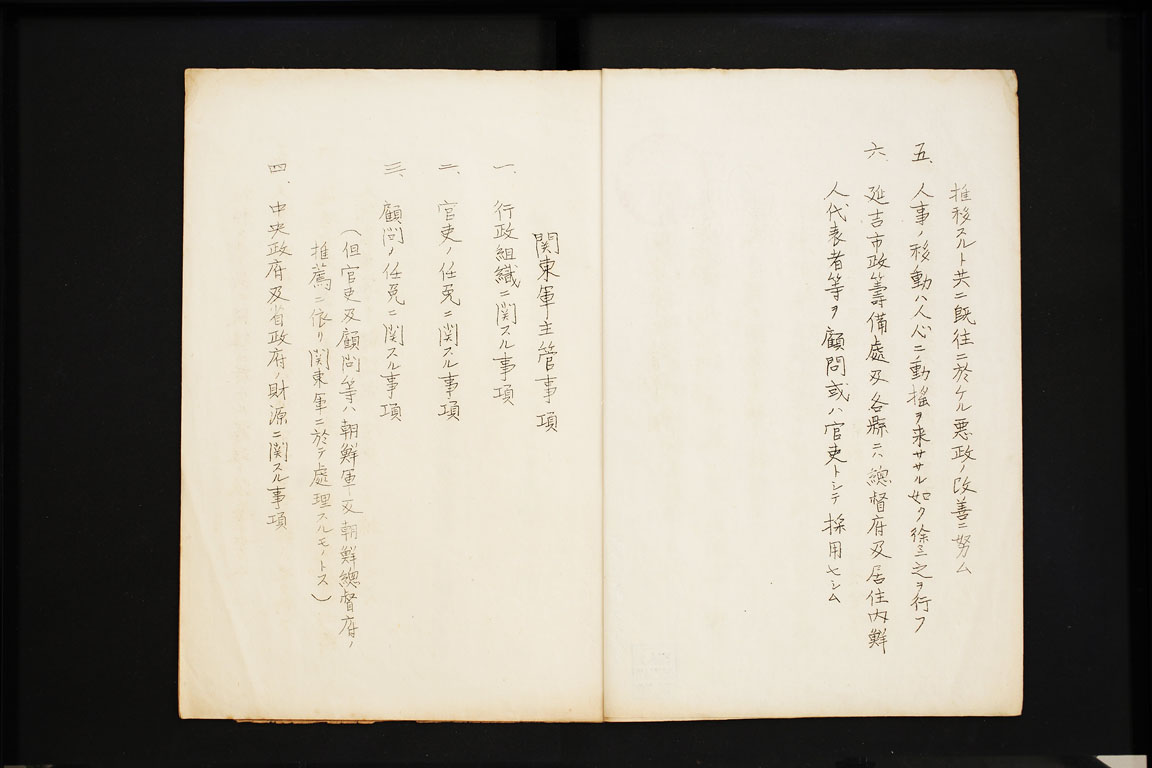 推移スルト共ニ既往ニ於ケル悪政ノ改善ニ努ム
五、人事ノ移動ハ人心ニ動搖ヲ来ササル如ク徐ニ之ヲ行フ
六、延吉市政籌備處及各縣ニハ總督府及居住内鮮
人代表者等ヲ顧問或ハ官吏トシテ採用セシム
関東軍主管事項
一、行政組織ニ関スル事項
二、官吏ノ任免ニ関スル事項
三、顧問ノ任免ニ関スル事項
(但官吏及顧問等ハ朝鮮軍及朝鮮總督府ノ
推薦ニ依リ関東軍ニ於テ處理スルモノトス)
四、中央政府及省政府ノ財源ニ関スル事項